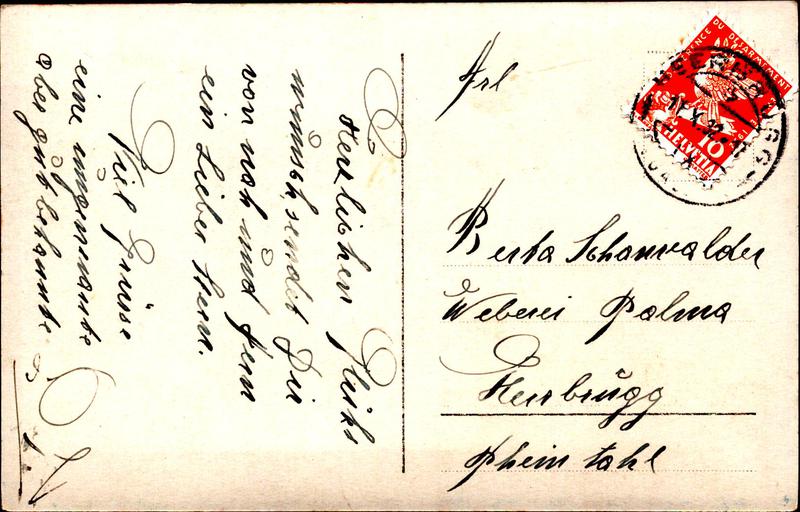 Herzlichen Glücks
wünsch, sendet Dir
von nah und fern
ein Lieber Stern.
Viel Grüsse
eine ungenannte
aber gut bekannte.
Frl
Berta Schawalder
Weberei Palma
Heerbrugg
Rheintahl
CONFERENCE DU DESARMEMENT
10
HELVETIA